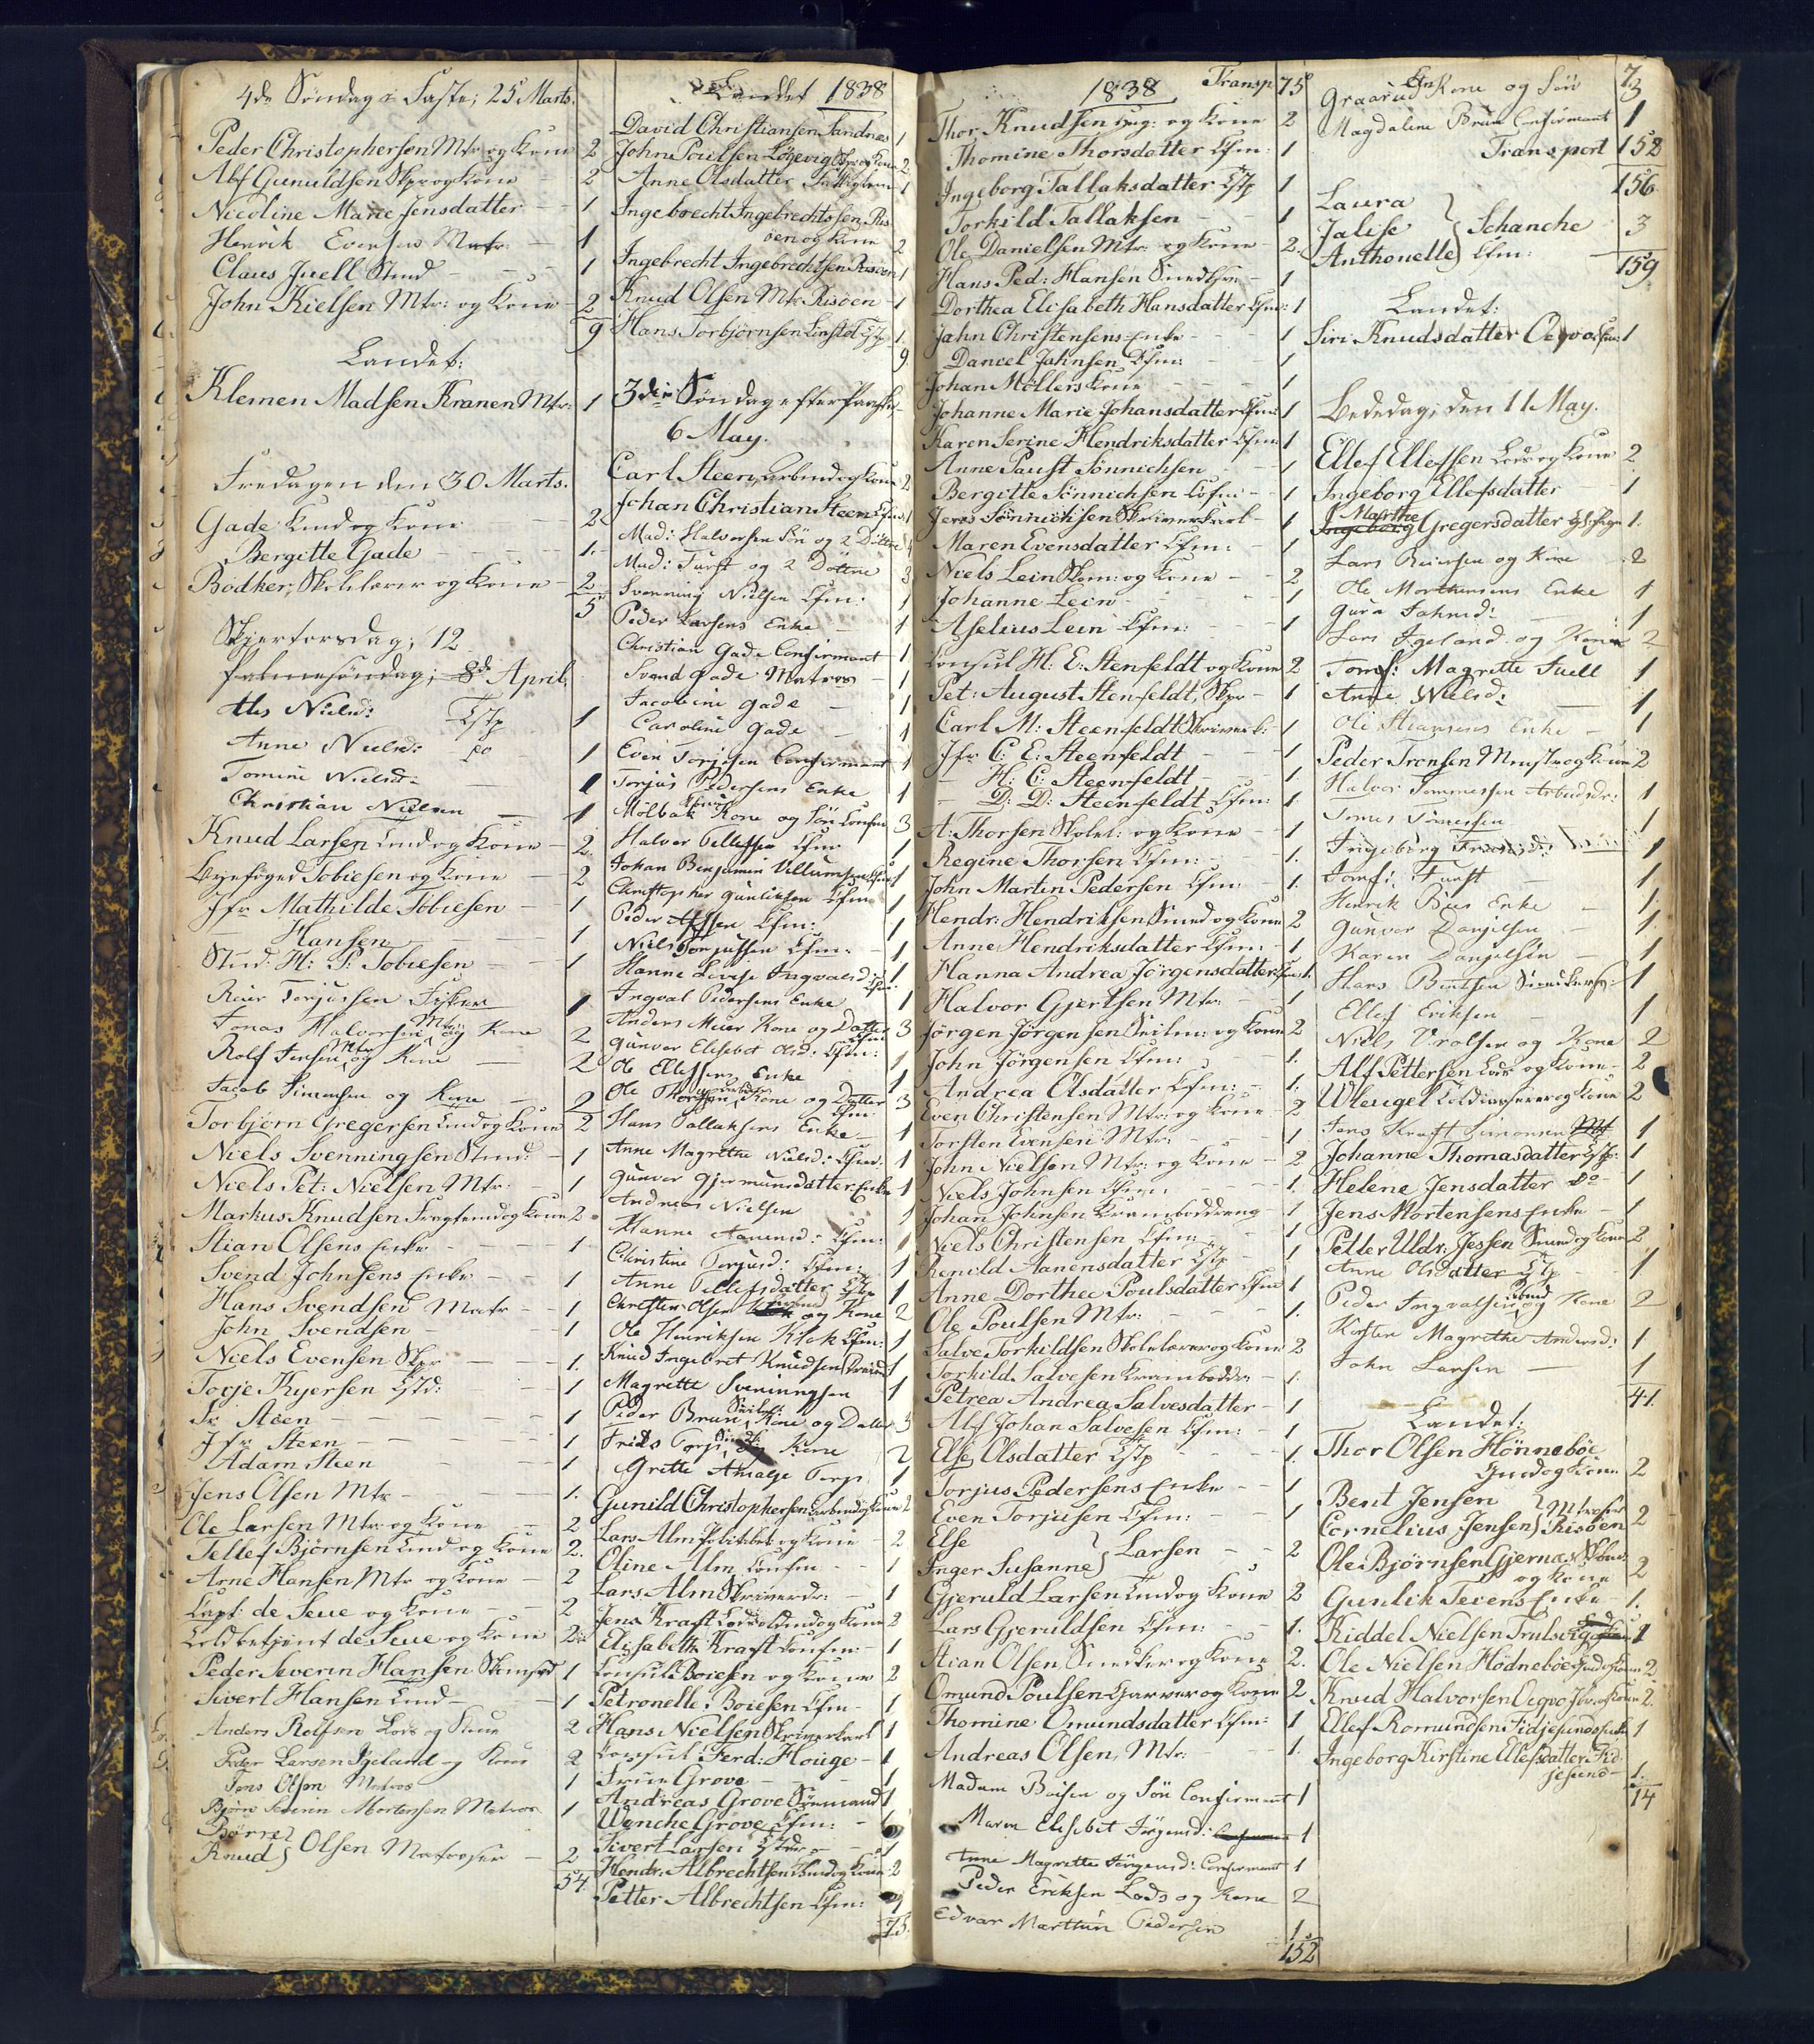 4de Søndag i Faste; 25 Marts.
Peder Christophersen Mtr: og Kone 2
Alf Gunuldsen Skpr og Kone 2
Nicoline Marie Jensdatter 1
Henrik Evensen Matr: 1
Claus Juell Stmd 1
John Kielsen Mtr: og Kone 2
9
Landet:
Klemen Madsen Kranen Mtr: 1
Fredagen den 30 Marts.
Gade Lmd og Kone 2
Bergitte Gade 1
Bødker, Skolelærer og Kone 2
5
Skjertorsdag; 12
Palmesøndag; 8de April.
Als Nielsd: Cstp 1
Anne Nielsd: do 1
Tomine Nielsd: 1
Christian Nielsen 1
Knud Larsen Lmd og Kone 2
Byefoged Tobiesen og Kone 2
Jfr Mathilde Tobiesen 1
Hansen 1
Stud: H: P: Tobiesen 1
Reier Torjussen Fisker 1
Jonas Halvorsen Mtr: og Kone 2
Rolf Jensen Mtr og Kone 2
Jacob Simensen og Kone 2
Torbjørn Gregersen Lmd og Kone 2
Niels Svenningsen Stmd: 1
Niels Pet: Nielsen Mtr: 1
Markus Knudsen Fragtemd og Kone 2
Stian Olsens Enke 1
Svend Johnsens Enke 1
Hans Svendsen Matr 1
John Svendsen 1
Niels Evensen Skpr 1
Torje Kyersen Cstd: 1
Fr Steen 1
Jfr Steen 1
Adam Steen 1
Jens Olsen Mtr 1
Ole Larsen Mtr og Kone 2
Tellef Bjørnsen Lmd og Kone 2
Arne Hansen Mtr og Kone 2
Capt: de Seue og Kone 2
Toldbetjent de Seue og Kone 2
Peder Severin Hansen 1
Sivert Hansen Lmd 1
Anders Rolfsen Lods og Kone 2
Peder Larsen Igeland og Kone 2
Jens Olsen Matros 1
Bjørn Severin Mortensen Matros 1
Børre
Knud } Olsen Matroser 2
54
Landet 1838
David Christiansen Sandnes 1
John Poulsen Løgevig Skpr og Kone 2
Anne Olsdatter 1
Ingebrecht Ingebrechtsen Ris
øen og Kone 2
Ingebrecht Ingebrechtsen Risøen 1
Knud Olsen Mtr Risøen 1
Hans Torbjørnsen Cstp 1
9
3die Søndag efter Paaske
6 May.
Carl Steen, Arbmd og Kone 2
Johan Christian Steen Cfm: 1
Mad: Halvorsen Søn og 2 Døttre 4
Mad: Furst og 2 Døttre 3
Svenning Nielsen Cfm: 1
Peder Larsens Enke 1
Christian Gade Confirmant 1
Svend Gade Matros 1
Jacobine Gade 1
Caroline Gade 1
Even Torjusen Confirmant 1
Torjus Pedersens Enke 1
Molbak Kone og Søn Confm 3
Halvor Tellefsen Cfm 1
Johan Benjamin Villumsen Cfm 1
Christopher Gunliksen Cfm 1
Peder Cfm: 1
Niels Torjussen Cfm: 1
Hanne Lovise Ingvalsd: Cfm: 1
Ingval Pedersens Enke 1
Anders Meier Kone og Datter 3
Gunver Elisebet Olsd: Cfm: 1
Ole Ellefsens Enke 1
Ole Thorsen Kone og Datter Cfm: 3
Hans Tallaksens Enke 1
Anne Magrethe Nielsd: Cfm: 1
Gunver Gjermundsdatter Enke 1
Andreas Nielsen 1
Hanne Aanensd: Cfm: 1
Christine Torjusd: Cfm: 1
Anne Tellefsdatter Cstp 1
Chrester Olsen og Kone 2
Ole Henriksen Klok Cfm: 1
Knud Ingebret Knudsen 1
Magrette Svenningsen 1
Peder Brun Kone og Datter 3
Frids Torp og Kone 2
Grette Amalje Torp 1
Gunild Christophersen Arbmd og Kone 2
Lars Alm Politibet: og Kone 2
Oline Alm Confm 1
Lars Alm Skriverdr: 1
Jens Kraft og Kone 2
Elisabeth Kraft Confm: 1
Consul Boiesen og Kone 2
Petronelle Boiesen Cfm 1
Hans Nielsen Skriverkarl 1
Consul Ferd: Houge 1
Frue Grove 1
Andreas Grove Sømand 1
Wenche Grove Cfm:
Sivert Larsen
Hendr: Albrechtsen Thmd og Kone 2
Petter Albrechtsen Cfm:
75.
1838 Transp 75
Thor Knudsen og Kone 2
Thomine Thorsdatter Cfm: 1
Ingeborg Tallaksdatter Cstp 1
Torkild Tallaksen 1
Ole Danielsen Mtr: og Kone 2
Hans Ped: Hansen 1
Dorthea Elisabeth Hansdatter Cfm: 1
Jahn Christensens Enke 1
Daniel Jahnsen Cfm: 1
Johan Møllers Kone 1
Johanne Marie Johansdatter Cfm: 1
Karen Serine Hendriksdatter Cfm: 1
Anne Paust Sønnichsen 1
Bergitte Sønnichsen Cofm 1
Jens Sønnichsen Skriverkarl 1
Maren Evensdatter Cfm: 1
Niels Lein Skom: og Kone 2
Johanne Lein 1
Aselius Lein Cfm: 1
Consul H: E: Stenfeldt og Kone 2
Pet: August Stenfeldt, Skpr 1
Carl M: Steenfeldt Skriverk: 1
Jfr C: E: Steenfeldt 1
H: C: Steenfeldt 1
D: D: Steenfeldt Cfm: 1
A: Thorsen Skolel: og Kone 1
Regine Thorsen Cfm: 1
John Martin Pedersen Cfm: 1
Hendr: Hendriksen Smed og Kone 2
Anne Hendriksdatter Cfm: 1
Hanna Andrea Jørgensdatter Cfm: 1
Halvor Gjertsen Mtr: 1
Jørgen Jørgensen Seilm: og Kone 2
John Jørgensen Cfm: 1
Andrea Olsdatter Cfm: 1
Even Christensen Mtr: og Kone 2
Torsten Evensen Mtr: 1
John Nielsen Mtr: og Kone 2
Niels Johnsen Cfm: 1
Johan Johnsen Kramboddreng 1
Niels Christensen Cfm: 1
Renild Aanensdatter Cstp 1
Anne Dorthee Poulsdatter Cfm 1
Ole Poulsen Mtr: 1
Salve Torkildsen Skolelærer og Kone 2
Torkild Salvesen Kramboddr: 1
Petrea Andrea Salvesdatter 1
Alf Johan Salvesen Cfm: 1
Else Olsdatter Cstp 1
Torjus Pedersens Enke 1
Even Torjusen Cfm: 1
Else
Inger Susanne } Larsen 2
Gjeruld Larsen Lmd og Kone 2
Lars Gjeruldsen Cfm: 1
Stian Olsen, Snedker og Kone 2
Omund Poulsen Garver og Kone 2
Thomine Omundsdatter Cfm: 1
Andreas Olsen, Mtr: 1
Madam Boisen og Søn Confirmant 1
Maren Elisebet Jørgensd: 1
Anne Magrette Jørgensd: Confirmant 1
Peder Eriksen Lods og Kone 2
Edvar Marthin Pedersen 1
152
Graarud Kone og Søn 3
Magdalene Brun Confirmant 1
Transport 152
156
Laura
Jalise
Anthonelle } Schanche Cfm: 3
159
Landet:
Siri Knudsdatter 1
Bededag; den 11 May.
Ellef Ellefsen Lods og Kone 2
Ingeborg Ellefsdatter 1
Marthe
Ingeborg Gregersdatter 1
Lars Reiersen og Kone 2
Ole Mortensens Enke 1
Gura Jahnsd: 1
Lars Igeland og Kone 2
Jomf: Magrette Juell 1
Anne Nielsd: 1
Ole Stiansens Enke 1
Peder Tronsen og Kone 2
Halvor Tommessen Arbeidsdr: 1
Tomes Tomessen 1
Ingeborg 1
Jomf: Furst 1
Henrik Bies Enke 1
Gunver Danjelsen 1
Karen Danjelsen 1
Hans Berntsen 1
Ellef Eriksen 1
Niels og Kone 2
Alf Pettersen Lods og Kone 2
Wleugel Toldinspecteur og Kone 2
Jens Kraft Simonsen 1
Johanne Thomasdatter Cstp: 1
Helene Jensdatter do 1
Jens Mortensens Enke 1
Petter Uldr: Jessen og Kone 2
Anne Olsdatter Cstp 1
Peder Ingvalsen og Kone 2
Kirsten Magrethe Andersd: 1
John Larsen 1
41.
Landet:
Thor Olsen Hønnebøe
Gmd og Kone 2
Bent Jensen
Cornelius Jensen } Mtroser Risøen 2
Ole Bjørnsen Gjernes
og Kone 2
Gunlik Teiens Enke 1.
Riddel Nielsen Trulsvig 1
Ole Nielsen Hødnebøe Gmd og Kone 2
Knud Halvorsen og Kone 2.
Ellef Romundsen Fidjesund 1
Ingeborg Kirstine Ellefsdatter Fid:
jesund 1.
14